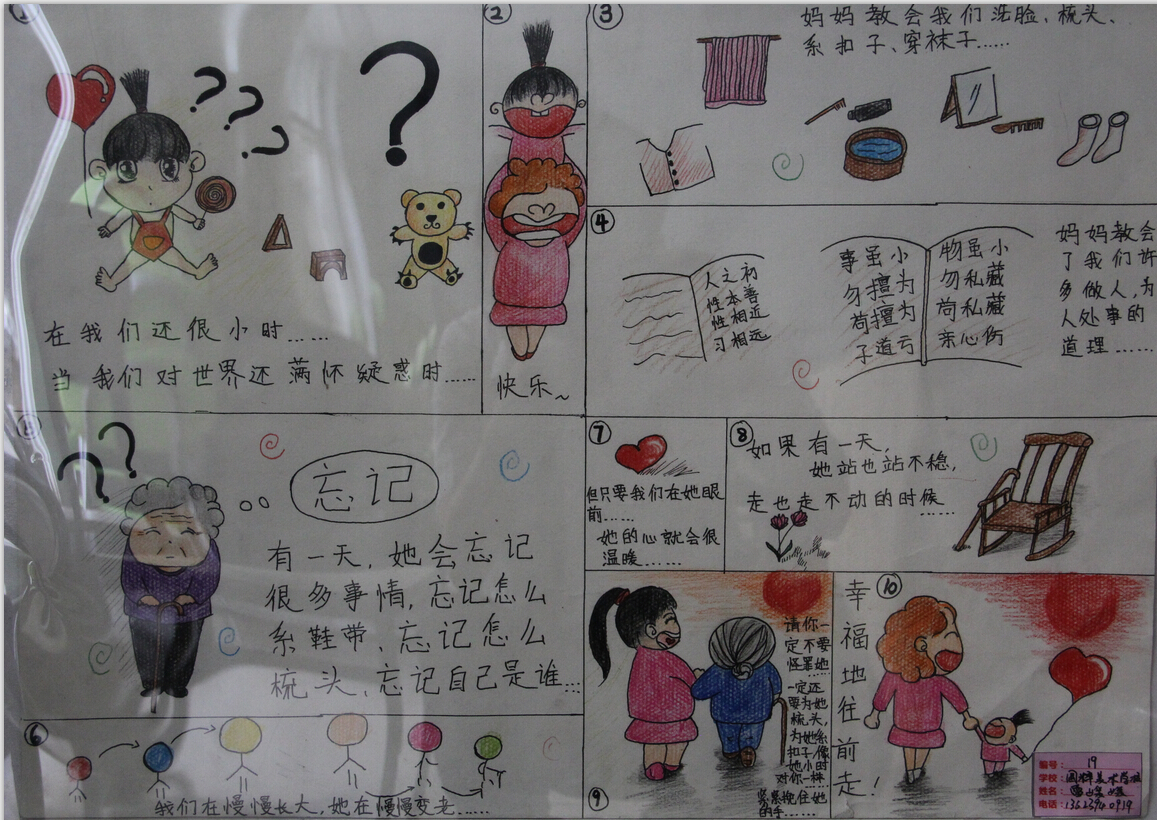 ①
在我们还很小时……
当我们对世界还满怀疑惑时……
②
快乐~
③
妈妈教会我们洗脸、梳头、
系扣子、穿袜子……
④
人之初
性本善
性相近
习相远
事虽小
勿擅为
苟擅为
子道亏
物虽小
勿私藏
苟私藏
亲心伤
妈妈教会
了我们许
多做人,为
人处事的
道理……
忘记
有一天,她会忘记
很多事情,忘记怎么
系鞋带、忘记怎么
梳头、忘记自己是谁…
⑥
我们在慢慢长大,她在慢慢变老……
⑦
但只要我们在她眼
前……
她的心就会很
温暖……
⑧
如果有一天,
她站也站不稳,
走也走不动的时候
……
⑨
请你一
定不要
怪罪她
一定还
要为她
梳头,
为她系
扣子,像
她小时
对你一样
紧紧握住她
的手……
⑩
幸福地往前走!
编号: 19
学校: 美术学校
姓名:
电话: